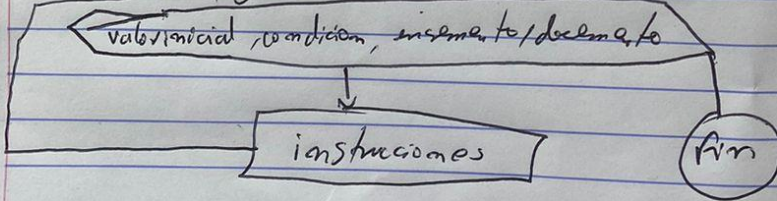 valor inicial, condicion, incremento/decremento
instrucciones
fin